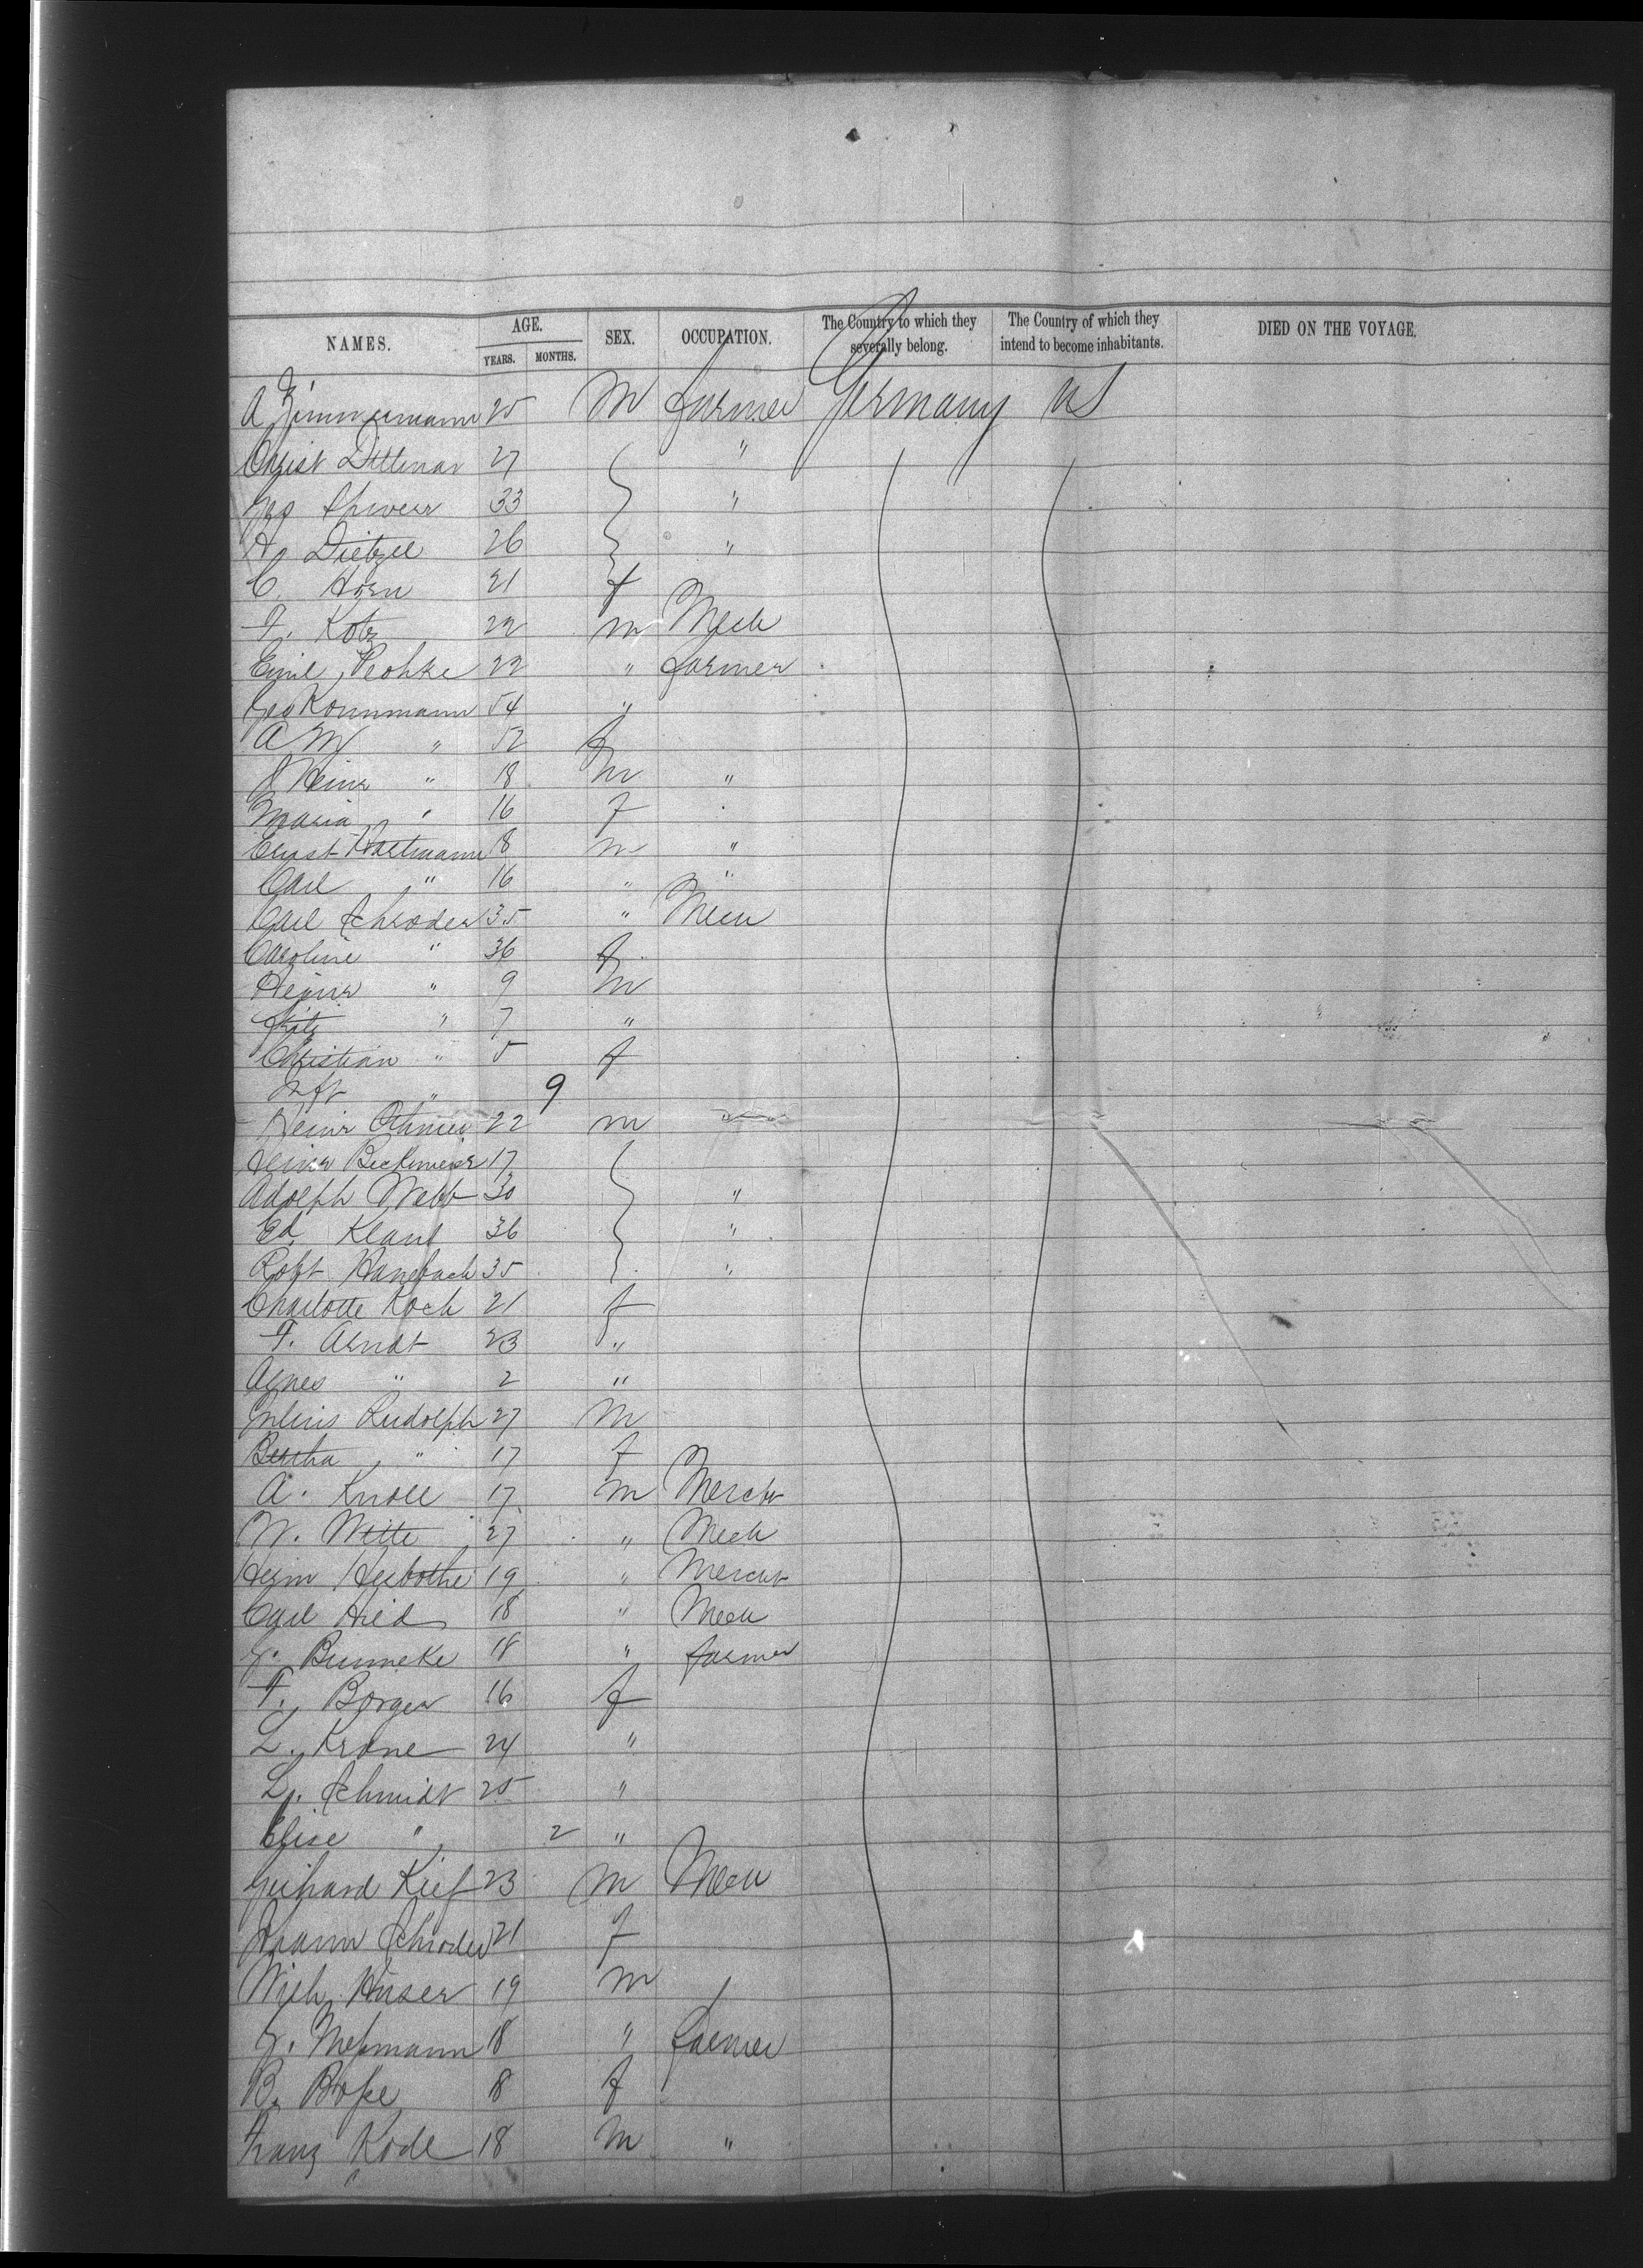 NAMES. AGE. YEARS. MONTHS. SEX. OCCUPATION. The Country to which they severally belong. The Country of which they intend to become inhabitants. DIED ON THE VOYAGE.
A Zimmermann 25 m farmer Germany US
Christ Dittmar 27 "
Geo 33 "
H. Dietzel 26 "
C. Horn 21 f
F. Kotz 22 m Mech
Emil 22 " farmer
Geo Kornmann 54 "
A M " 52 f
J Heinr " 18 m "
Maria " 16 f
Ernst Hartmann 18 m "
Carl " 16 " "
Carl Schroder 35 " Mech
Caroline " 36 f
Heinr " 9 m
Fritz " 7 "
Christian " 5 f
Inft " 9
Heinr 22 m "
Heinr Beckmeier 17
Adolph Webb 30 "
Ed. 36 "
Robt 35 "
Charlotte Koch 21 f
F. Arndt 23 "
Agnes " 2 "
Julius Rudolph 27 m
Bertha " 17 f
A. Knoll 17 m Mercht
W. Witte 27 " Mech
19 " Mercht
Carl 18 " Mech
18 " farmer
F. Borger 16 f
L. Krone 24 "
L. Schmidt 25 "
Elise " 2 "
Gerhard Kief 23 m Mech
Schroder 21 f
19 m
18 " farmer
B. 18 f
Franz Kode 18 m "